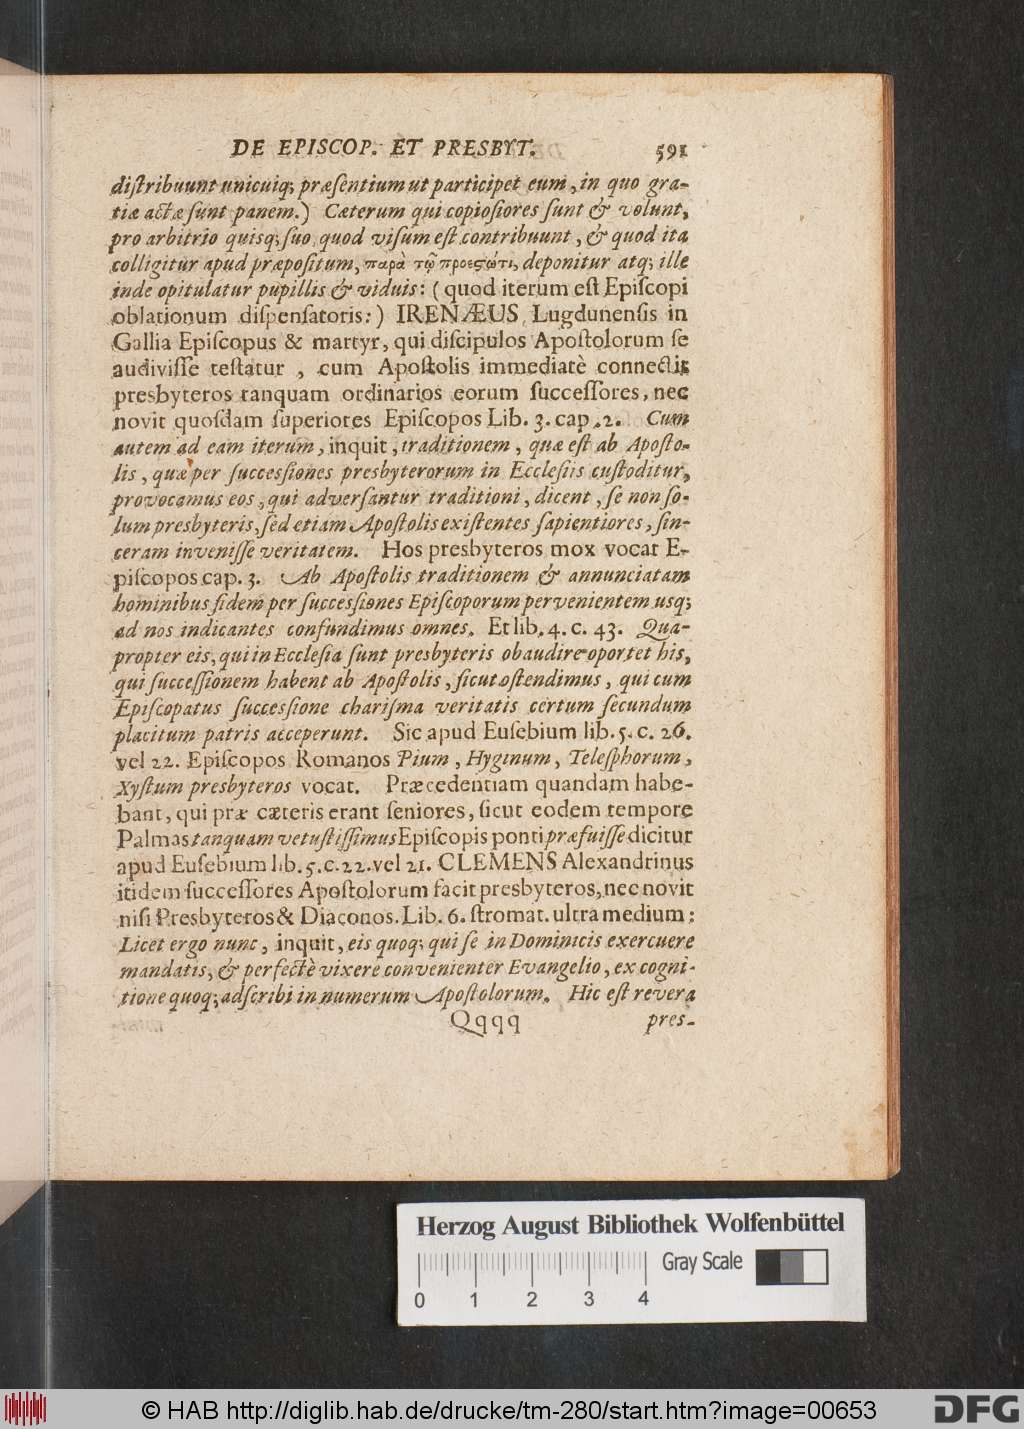 DE EPISCOP. ET PRESBYT. 591
diſtribuunt unicuiq; præſentium ut participet eum, in quo gra-
tiæ actæ ſunt panem.) Cæterum qui copioſiores ſunt & volunt,
pro arbitrio quisq; ſuo quod viſum eſt contribuunt, & quod ita
colligitur apud præpoſitum, παρὰ τῷ προεςῶτι, deponitur atq; ille
inde opitulatur pupillis & viduis: (quod iterum eſt Epiſcopi
oblationum diſpenſatoris:) IRENÆUS Lugdunenſis in
Gallia Epiſcopus & martyr, qui diſcipulos Apoſtolorum ſe
audiviſſe teſtatur, cum Apoſtolis immediatè connectit
presbyteros tanquam ordinarios eorum ſucceſſores, nec
novit quoſdam ſuperiores Epiſcopos Lib. 3. cap. 2. Cum
autem ad eam iterum, inquit, traditionem, quæ eſt ab Apoſto-
lis, quæ per ſucceſſiones presbyterorum in Eccleſiis cuſtoditur,
provocamus eos, qui adverſantur traditioni, dicent, ſe non ſo-
lum presbyteris, ſed etiam Apoſtolis exiſtentes ſapientiores, ſin-
ceram inveniſſe veritatem. Hos presbyteros mox vocat E-
piſcopos cap. 3. Ab Apoſtolis traditionem & annunciatam
hominibus fidem per ſucceſſiones Epiſcoporum pervenientem usq;
ad nos indicantes confundimus omnes. Et lib. 4. c. 43. Qua-
propter eis, qui in Eccleſia ſunt presbyteris obaudire oportet his,
qui ſucceſſionem habent ab Apoſtolis, ſicut oſtendimus, qui cum
Epiſcopatus ſucceſſione chariſma veritatis certum ſecundum
placitum patris acceperunt. Sic apud Euſebium lib. 5. c. 26.
vel 22. Epiſcopos Romanos Pium, Hyginum, Teleſphorum,
Xyſtum presbyteros vocat. Præcedentiam quandam habe-
bant, qui præ cæteris erant ſeniores, ſicut eodem tempore
Palmas tanquam vetuſtiſſimus Epiſcopis ponti præfuiſſe dicitur
apud Euſebium lib. 5. c. 22. vel 21. CLEMENS Alexandrinus
itidem ſucceſſores Apoſtolorum facit presbyteros, nec novit
niſi Presbyteros & Diaconos. Lib. 6. ſtromat. ultra medium:
Licet ergo nunc, inquit, eis quoq; qui ſe in Dominicis exercuere
mandatis, & perfectè vixere convenienter Evangelio, ex cogni-
tione quoq; adſcribi in numerum Apoſtolorum. Hic eſt revera
Qqqq pres-
Herzog August Bibliothek Wolfenbüttel
Gray Scale
0 1 2 3 4
© HAB http://diglib.hab.de/drucke/tm-280/start.htm?image=00653
DFG